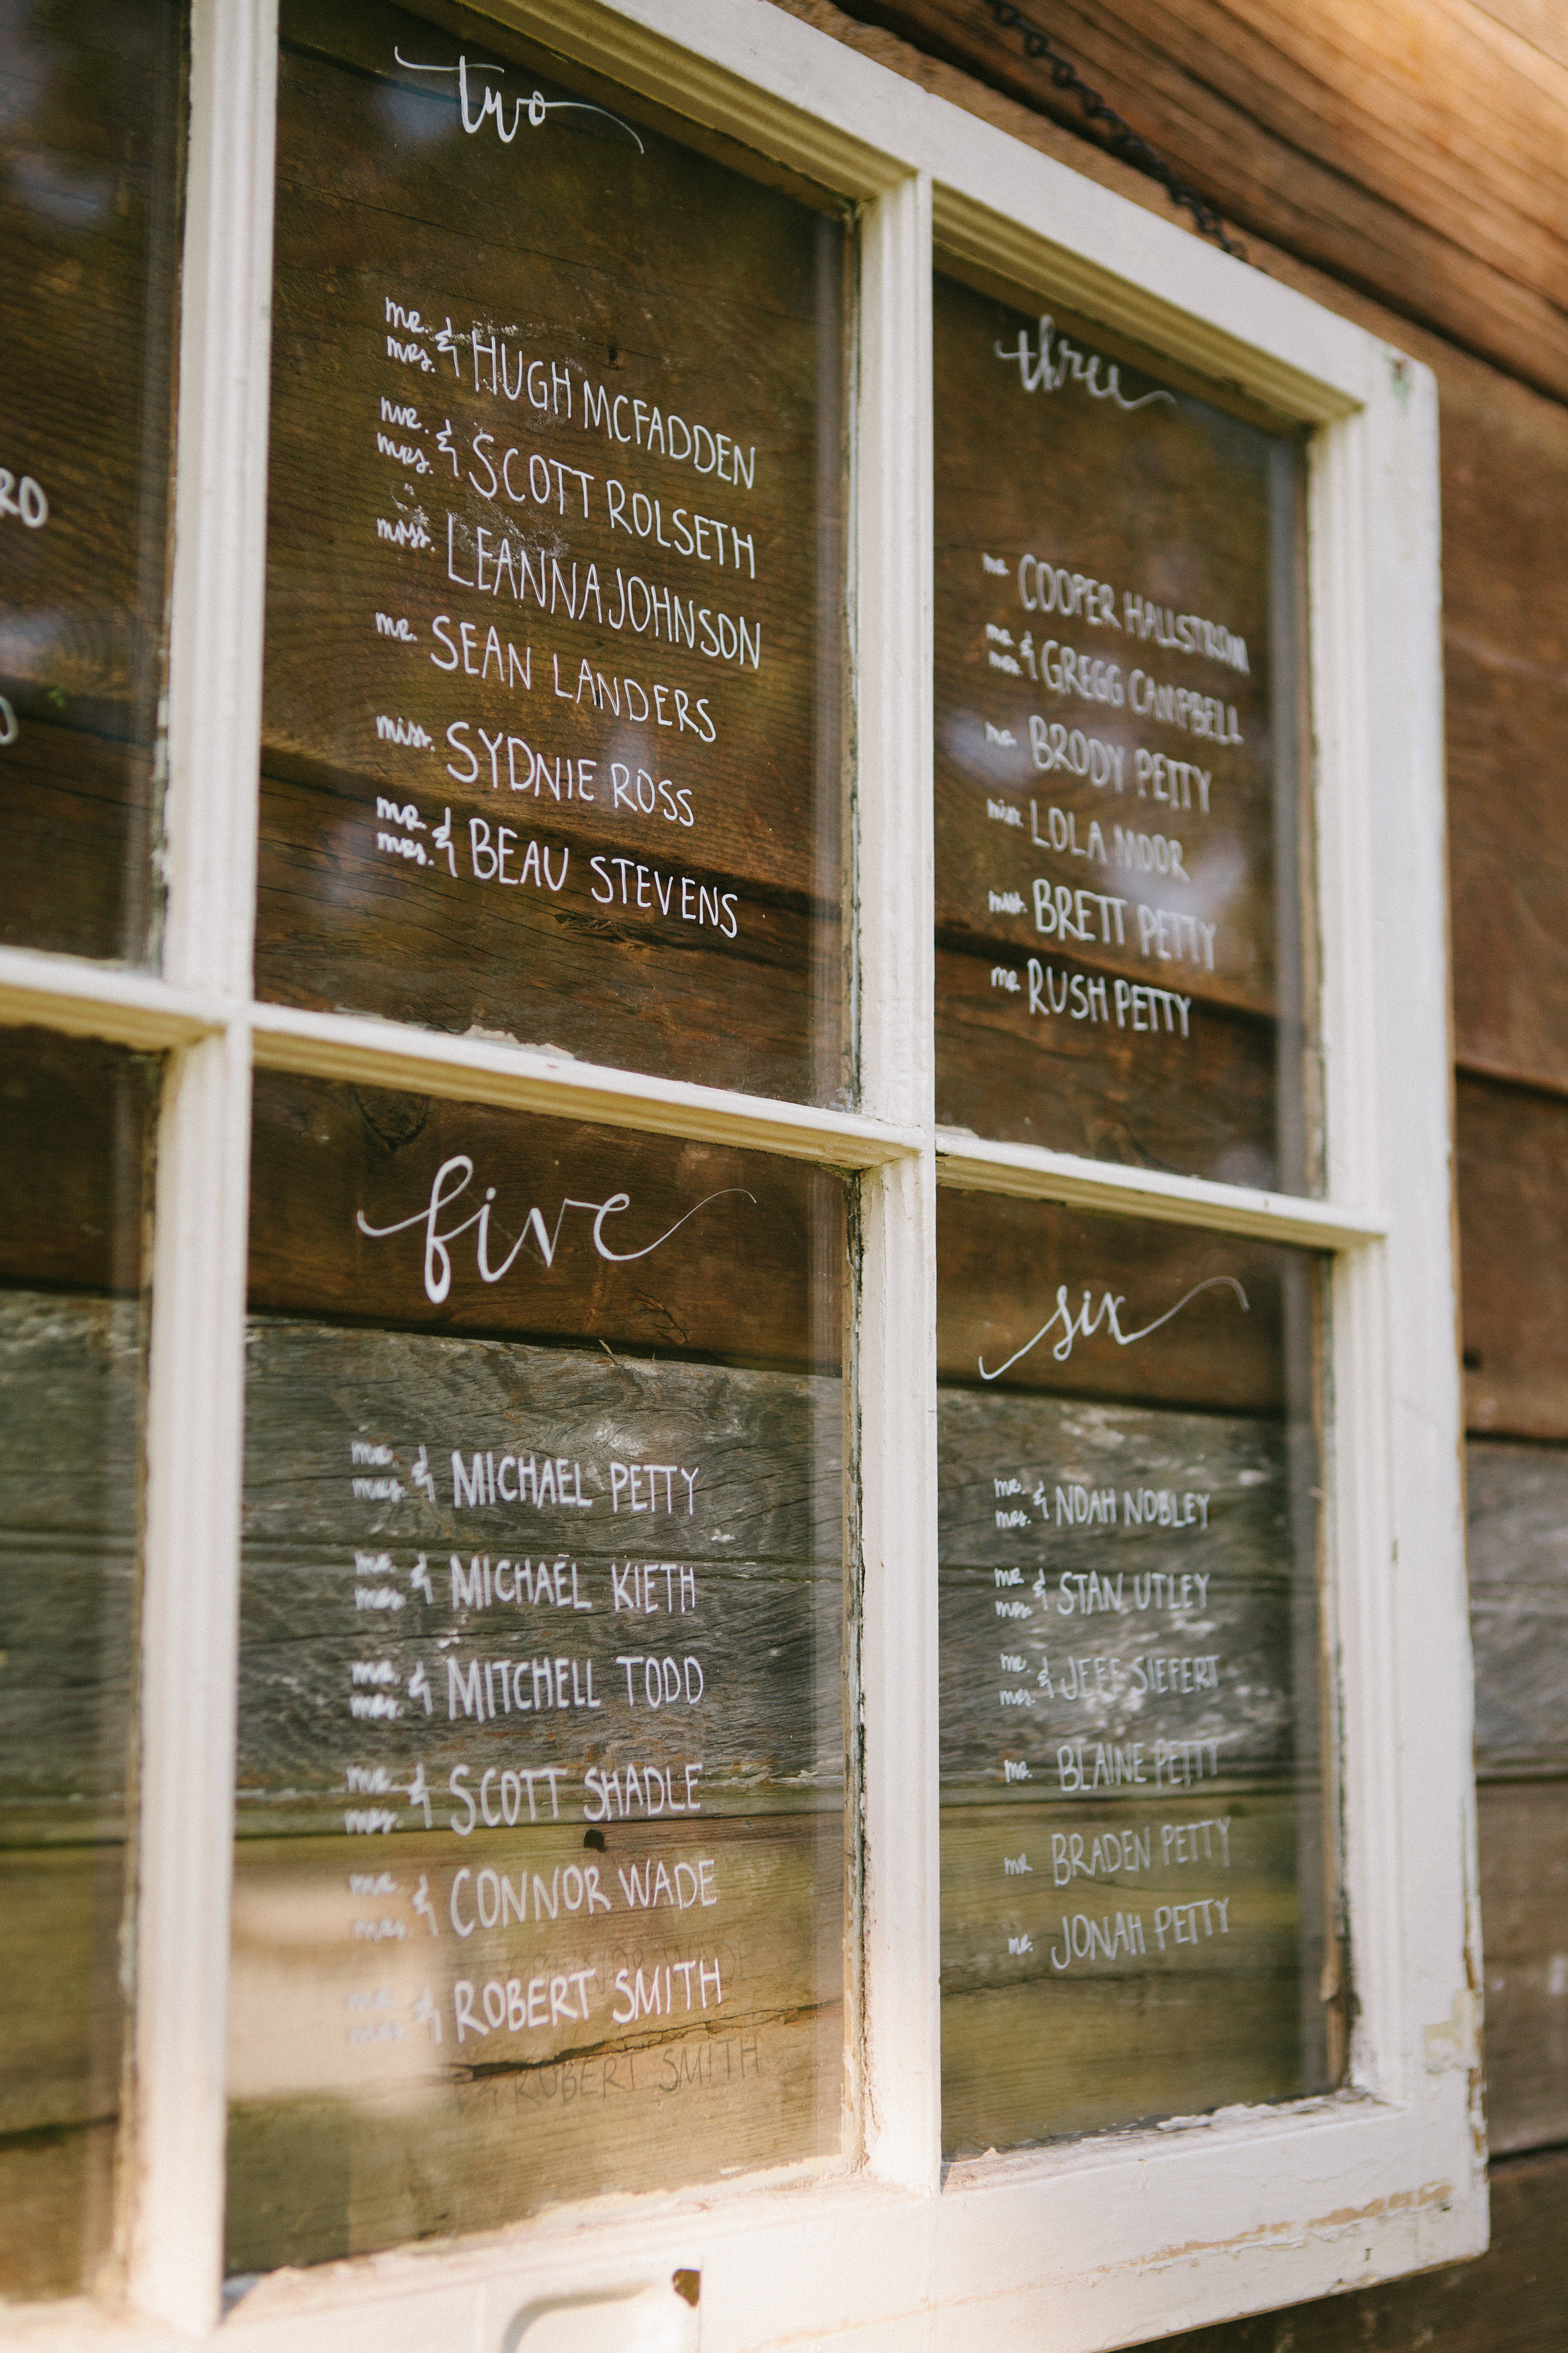 RO
two
mr. & mrs. HUGH MCFADDEN
mr. & mrs. SCOTT ROLSETH
miss. LEANNA JOHNSON
mr. SEAN LANDERS
miss. SYDNIE ROSS
mr. & mrs. BEAU STEVENS
three
mr. COOPER HALLSTROM
mr. & mrs. GREGG CAMPBELL
mr. BRODY PETTY
miss. LOLA MOOR
BRETT PETTY
mr. RUSH PETTY
five
mr. & mrs. MICHAEL PETTY
mr. & mrs. MICHAEL KIETH
mr. & mrs. MITCHELL TODD
mr. & mrs. SCOTT SHADLE
mr. & mrs. CONNOR WADE
mr. & mrs. ROBERT SMITH
six
mr. & mrs. NOAH NOBLEY
mr. & mrs. STAN UTLEY
mr. & mrs. JEFF SIEFERT
mr. BLAINE PETTY
mr. BRADEN PETTY
mr. JONAH PETTY